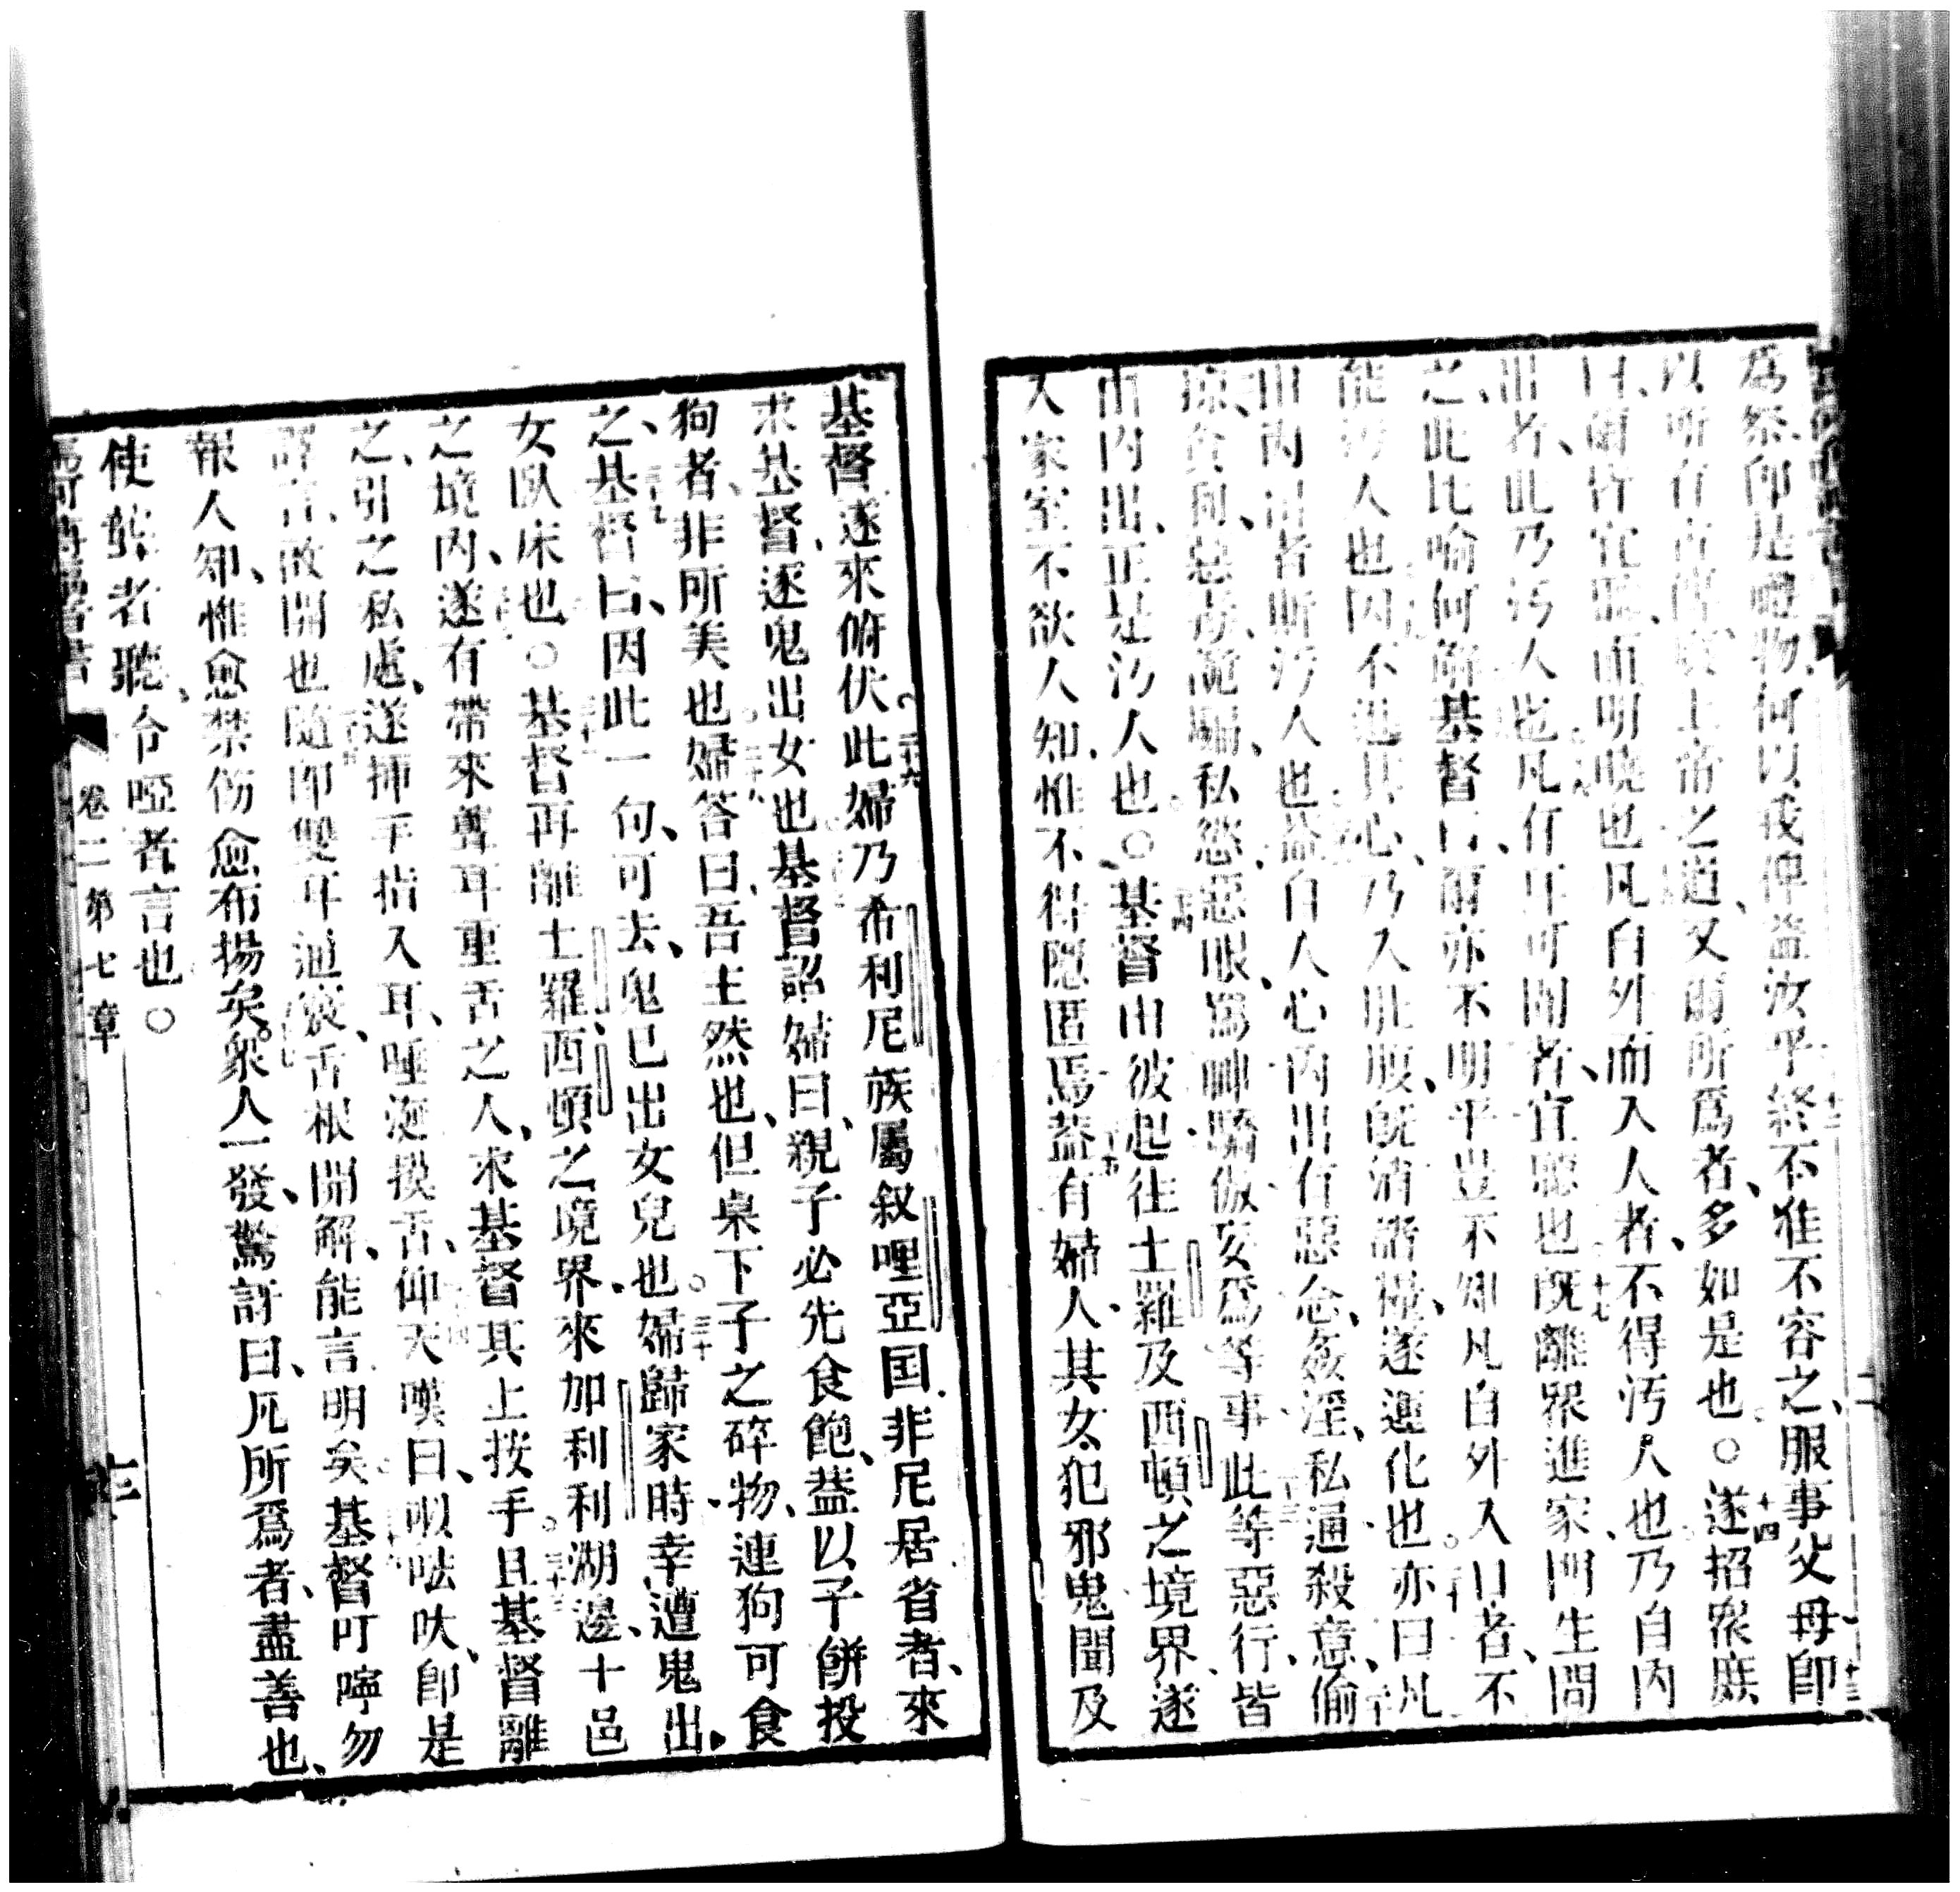 爲祭、卽是禮物何以我俾益汝乎終不准不容之、服事父母卽
以所有古傳廢上帝之道、又爾所爲者、多如是也○遂招衆庶
曰、爾皆宜聽、而明曉也凡自外而入人者、不得汚人也乃自內
出者、此乃汚人也凡有耳可聞者、宜聽也旣離衆進家、門生問
之、此比喻何解基督曰爾亦不明乎豈不知凡自外入口者、不
能汚人也因不進其心、乃入肚腹、旣消諸穢、遂運化也亦曰凡
由內出者斯汚人也葢自人心內出有惡念、姦淫、私通殺意、偷
貪惡詭騙、私慾、惡眼、罵驕傲妄爲等事此等惡行、皆
由內出、正是汚人也○基督由彼起往土羅及西頓之境界、遂
入家室不欲人知、惟不得隱匿焉葢有婦人、其女犯邪鬼聞及
基督遂來俯伏此婦乃希利尼族屬叙哩亞国、非尼居省者、來
求基督、逐鬼出女也基督詔婦曰、親子必先食飽、葢以子餅投
狗者、非所美也婦答曰、吾主然也、但桌下子之碎物、連狗可食
之、基督曰、因此一句、可去、鬼已出女兒也婦歸家時幸遭鬼出、
女臥床也○基督再離土羅、西頓之境界、來加利利湖邊、十邑
之境內、遂有帶來聾耳重舌之人、求基督其上按手且基督離
之、引之私處、遂揷手指入耳、唾沫摸舌、仰天嘆曰、㕽呿呔、卽是
譯言、啟開也隨卽雙耳通裝、舌根開解、能言明矣基督叮嚀勿
報人知、惟愈禁伊愈布揚矣衆人一發、驚訝曰、凢所爲者、盡善也、
使聾者聽、令啞者言也○
卷二第七章